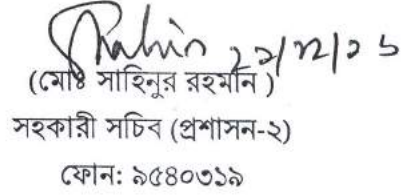 ২২/১২/১৬
(মোঃ সাহিনুর রহমান )
সহকারী সচিব (প্রশাসন-২)
ফোন: ৯৫৪০৩১৯